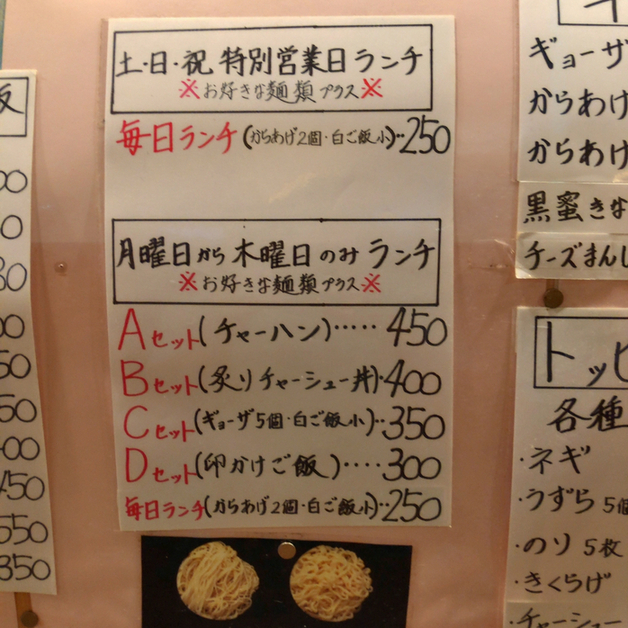 土・日・祝 特別営業日ランチ
※お好きな麺類プラス※
毎日ランチ(からあげ2個・白ご飯小)‥250
月曜日から木曜日のみランチ
※お好きな麺類プラス※
Aセット(チャーハン)‥‥‥450
Bセット(炙りチャーシュー丼)・400
Cセット(ギョーザ5個・白ご飯小)‥350
Dセット(卵かけご飯)‥‥300
毎日ランチ(からあげ2個・白ご飯小)‥250
飯
00
0
80
00
50
50
400
450
550
350
ギョーザ
からあげ
からあげ
黒蜜きな
チーズまん
トッピ
各種
・ネギ
・うずら 5個
・のり 5枚
・きくらげ
・チャーシュー